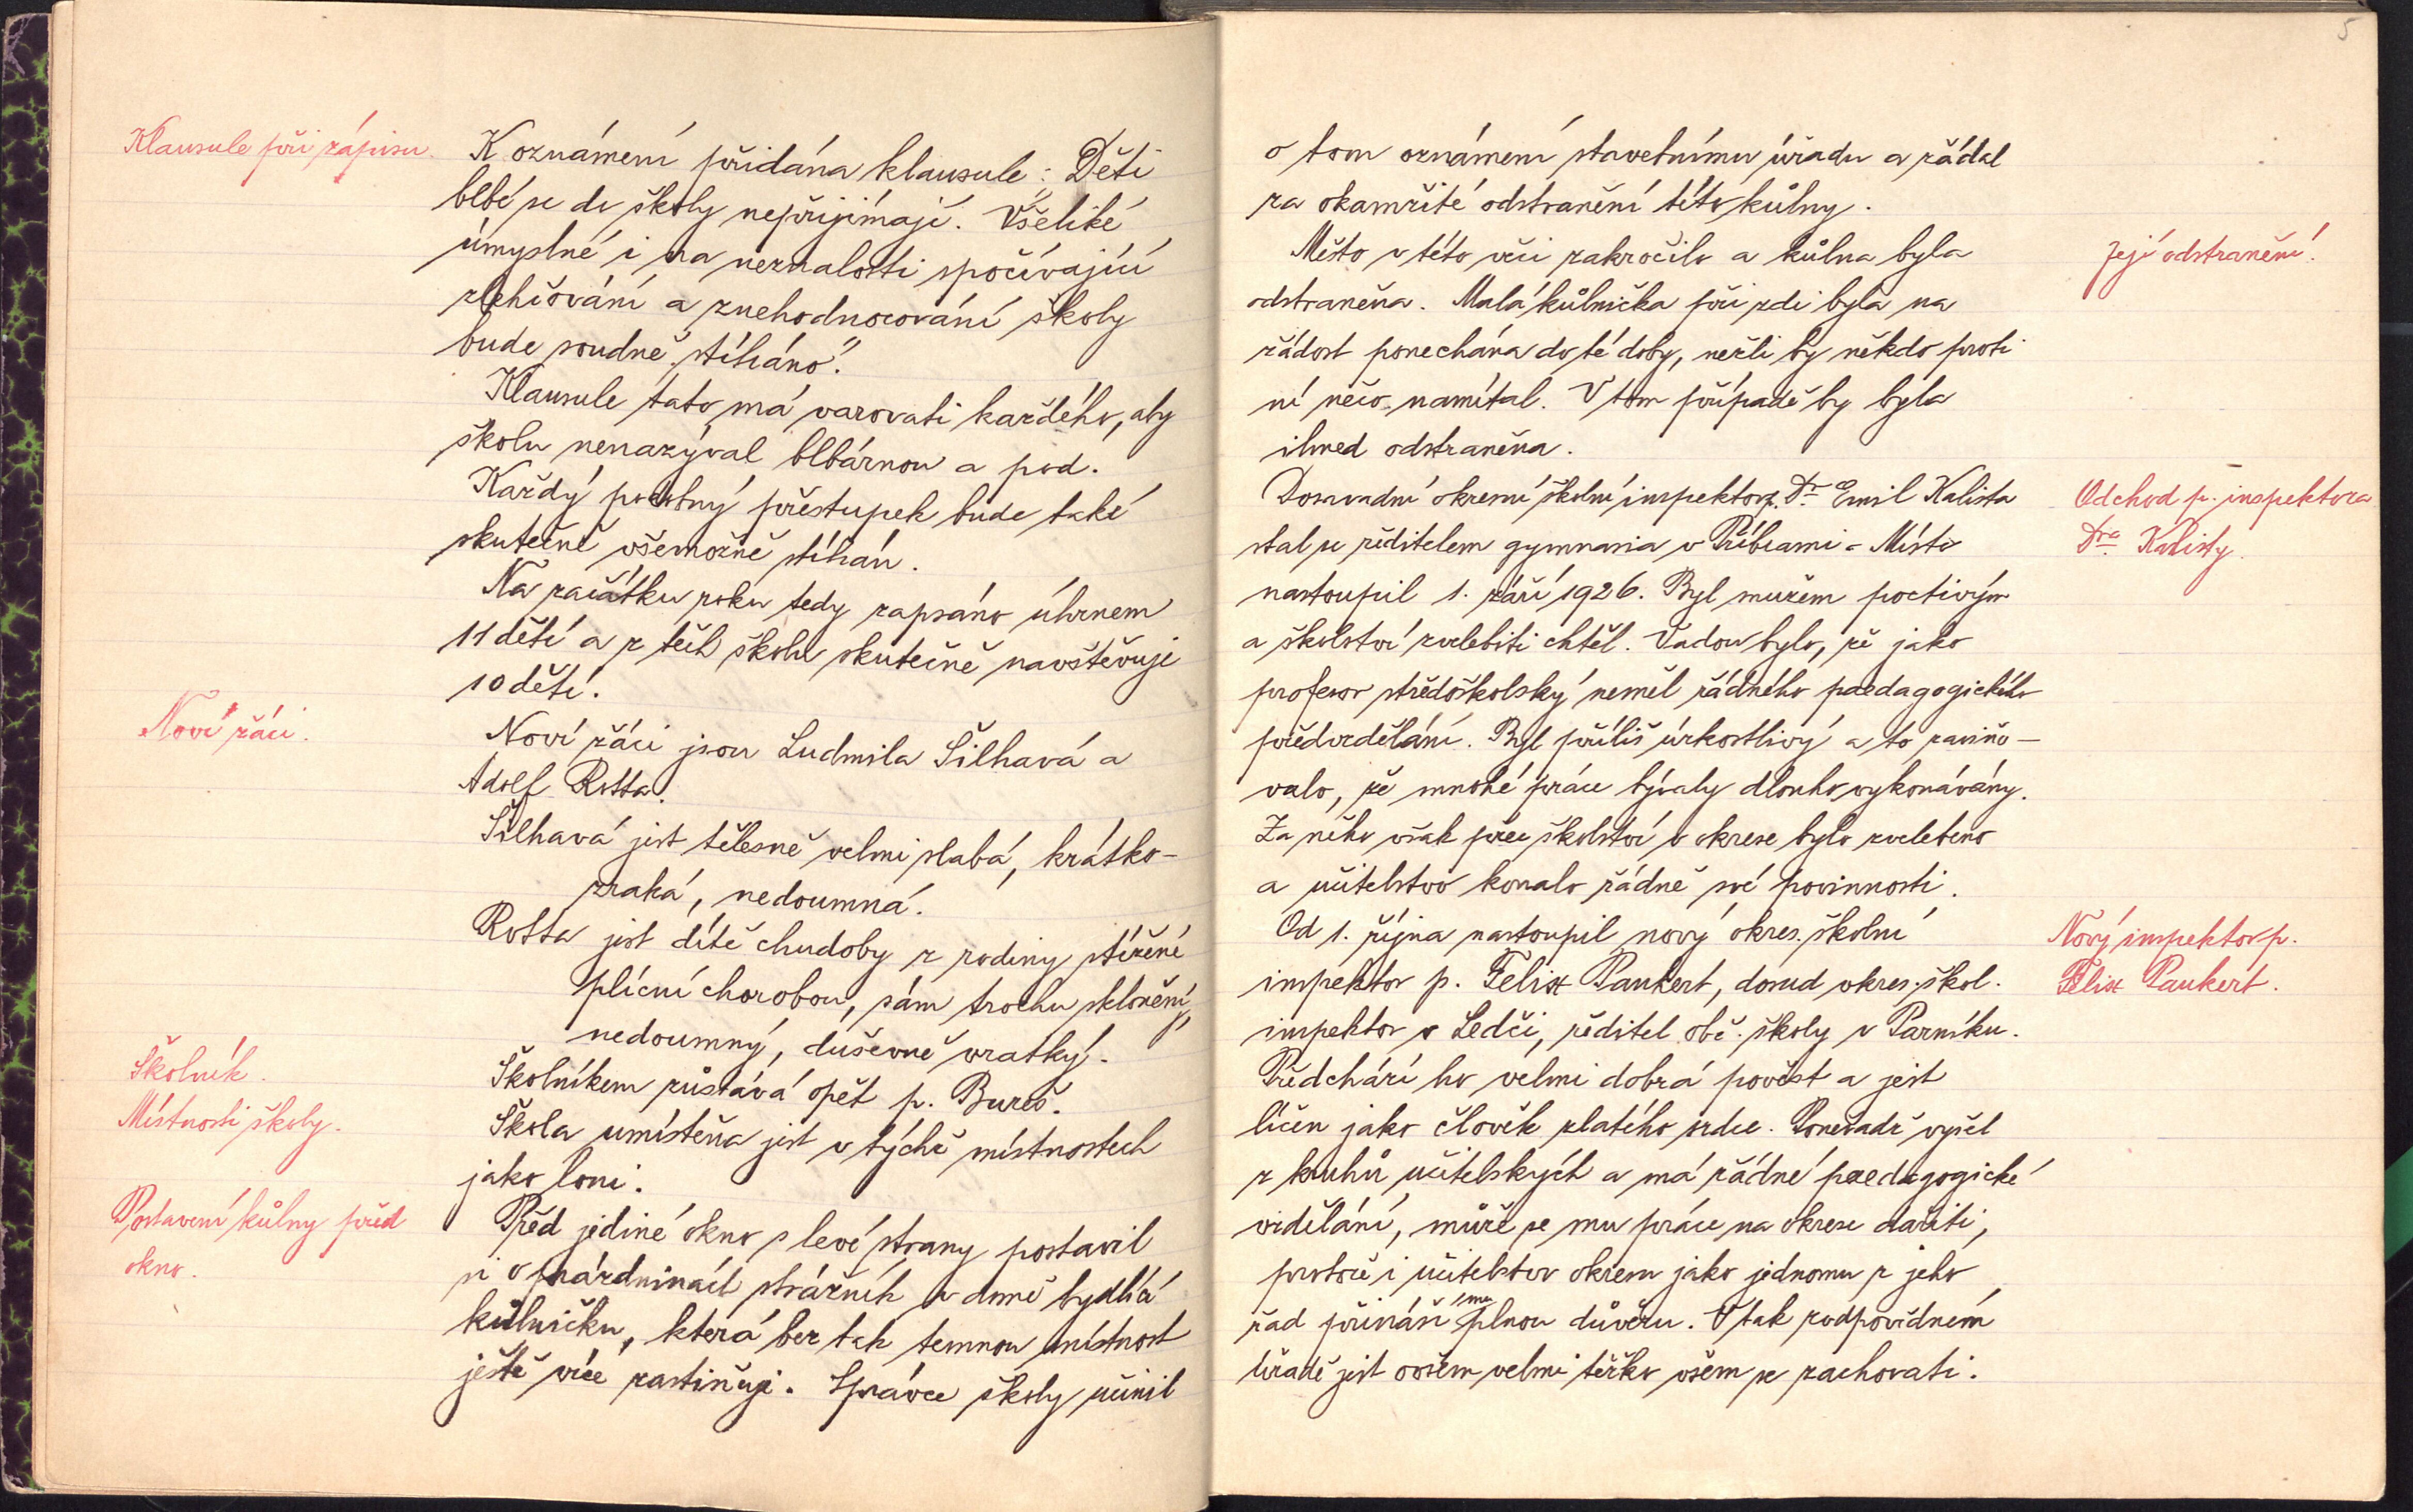 Klausule při zápisu.
K oznámení přidána klausule: „Děti
blbé se do školy nepřijímají. Všeliké
úmyslné i na neznalosti spočívající
zlehčování a znehodnocování školy
bude soudně stíháno".
Klausule tato má varovati každého, aby
školu nenazýval blbárnou a pod.
Každý podobný přestupek bude také
skutečně všemožně stíhán.
Na začátku roku tedy zapsáno úhrnem
11 dětí a z těch školu skutečně navštěvuje
10 dětí.
Noví žáci.
Noví žáci jsou Ludmila Šilhavá a
Adolf Rotta.
Šilhavá jest tělesně velmi slabá, krátko-
zraká, nedoumná.
Rotta jest dítě chudoby z rodiny stížené
plícní chorobou, sám trochu skloněný,
nedoumný, duševně vratký.
Školník.
Školníkem zůstává opět p. Bureš.
Místnosti školy.
Škola umístěna jest v týchž místnostech
jako loni.
Postavení kůlny před
okno.
Před jediné okno s levé strany postavil
si o prázdninách strážník v domě bydlící
kůlničku, která bez tak temnou místnost
ještě více zastiňuje. Správce školy učinil
5
o tom oznámení stavebnímu úřadu a žádal
za okamžité odstranění této kůlny.
Její odstranění.
Město v této věci zakročilo a kůlna byla
odstraněna. Malá kůlnička při zdi byla na
žádost ponechána do té doby, nežli by někdo proti
ní něco namítal. V tom případě by byla
ihned odstraněna.
Odchod p. inspektora
Dra Kalisty.
Dosavadní okresní školní inspektor p. Dr Emil Kalista
stal se ředitelem gymnasia v Příbrami - Místo
nastoupil 1. září 1926. Byl mužem poctivým
a školství zvelebiti chtěl. Vadou bylo, že jako
profesor středoškolský neměl řádného paedagogického
předvzdělání. Byl příliš úzkostlivý a to zaviňo-
valo, že mnohé práce bývaly dlouho vykonávány.
Za něho však přec školství v okrese bylo zvelebeno
a učitelstvo konalo řádně své povinnosti.
Nový inspektor p.
Felix Paukert.
Od 1. října nastoupil nový okres. školní
inspektor p. Felix Paukert, dosud okres. škol.
inspektor v Ledči, ředitel obč. školy v Parníku.
Předchází ho velmi dobrá pověst a jest
líčen jako člověk zlatého srdce. Poněvadž vyšel
z kruhů učitelských a má řádné paedagogické
vzdělání, může se mu práce na okrese dařiti,
protože i učitelstvo okresu jako jednomu z jeho
řad přináší mu plnou důvěru. V tak zodpovědném
úřadě jest ovšem velmi těžko všem se zachovati.